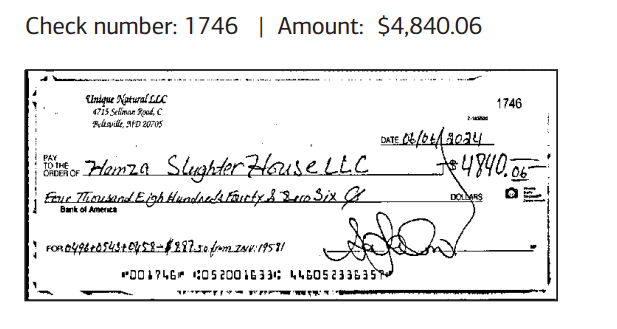 Check number: 1746 | Amount: $4,840.06
Unique Natural LLC
1746
4715 Sellman Road, C
Beltsville, MD 20705
DATE 06/06/2024
PAY
TO THE
ORDER OF Hamza Slughter House LLC $4840.06
Four Thousand Eigh Hundreds Fourty & Zero Six DOLLARS
Bank of America
FOR 0496+0543+0458-$287.50 from INV:19581
⑈001746⑈ ⑆052001633⑆ 446052336357⑈